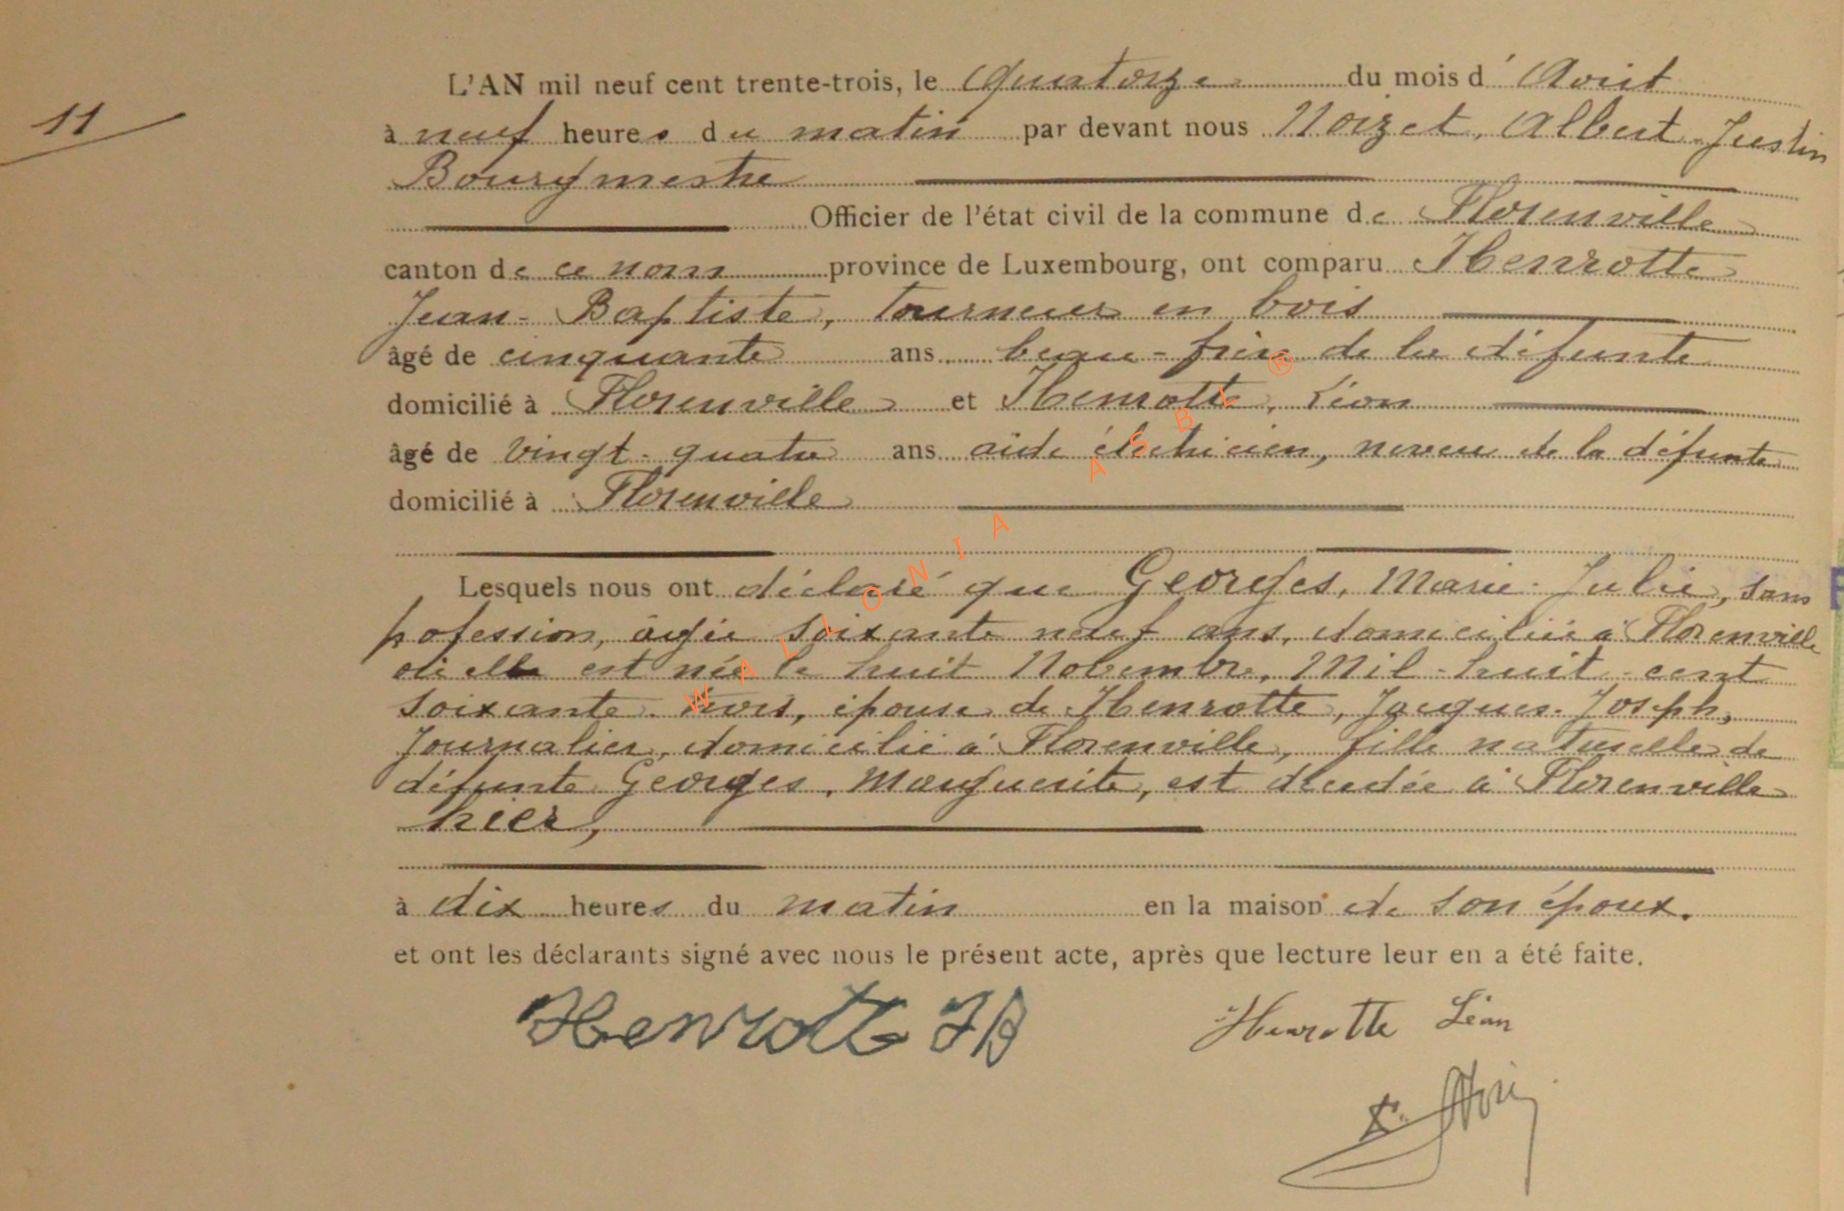 L'AN mil neuf cent trente-trois, le Quatorze du mois d' Août
11
à neuf heures du matin par devant nous Noizet, Albert-Justin
Bourgmestre
Officier de l'état civil de la commune de Florenville
canton de ce nom province de Luxembourg, ont comparu Henrotte
Jean-Baptiste, tourneur en bois
âgé de cinquante ans beau-frère de la défunte
domicilié à Florenville et Henrotte, Léon
âgé de vingt-quatre ans aide électricien, neveu de la défunte
domicilié à Florenville
Lesquels nous ont déclaré que Georges, Marie-Julie, sans
pofession, âgée soixante neuf ans, domiciliée à Florenville
où elle est née le huit Novembre, Mil-huit-cent
soixante-trois, épouse de Henrotte, Jacques-Joseph,
Journalier, domicilié à Florenville, fille naturelle de
défunte Georges, Marguerite, est décédée à Florenville
hier,
à dix heures du matin en la maison de son époux.
et ont les déclarants signé avec nous le présent acte, après que lecture leur en a été faite.
Henrotte JB Henrotte Léon
WALLONIA ASBL ®